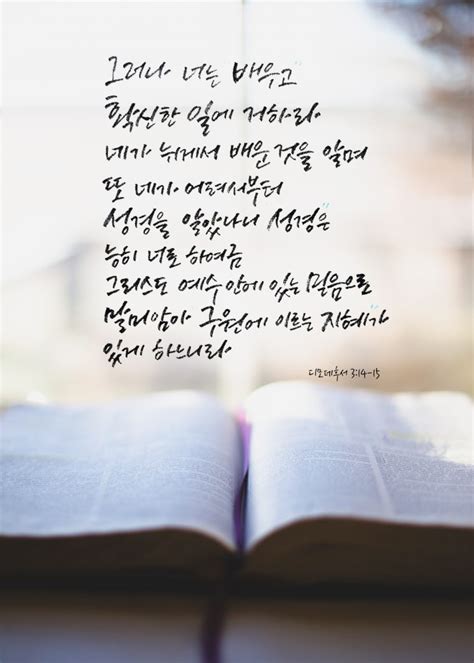 그러나 너는 배우고
확신한 일에 거하라
네가 뉘게서 배운 것을 알며
또 네가 어려서부터
성경을 알았나니 성경은
능히 너로 하여금
그리스도 예수 안에 있는 믿음으로
말미암아 구원에 이르는 지혜가
있게 하느니라
디모데후서 3:14-15